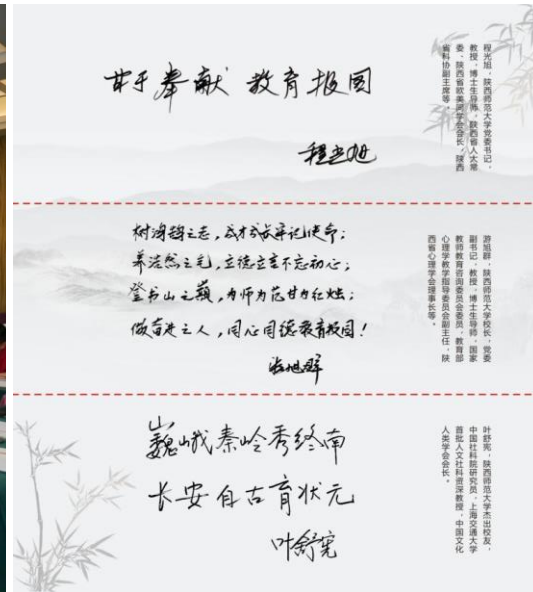 甘于奉献 教育报国
程光旭
程光旭,陕西师范大学党委书记、
教授、博士生导师,陕西省人大常
委、陕西省欧美同学会会长,陕西
省科协副主席等。
树鸿鹄之志,成才成长牢记使命;
养浩然之气,立德立言不忘初心;
登书山之巅,为师为范甘为红烛;
做奋进之人,同心同德教育报国!
游旭群
游旭群,陕西师范大学校长、党委
副书记、教授、博士生导师,国家
教师教育咨询委员会委员、教育部
心理学教学指导委员会副主任,陕
西省心理学会理事长等。
巍峨秦岭秀终南
长安自古育状元
叶舒宪
叶舒宪,陕西师范大学杰出校友,
中国社科院研究员、上海交通大学
首批人文社科资深教授,中国文化
人类学会会长。